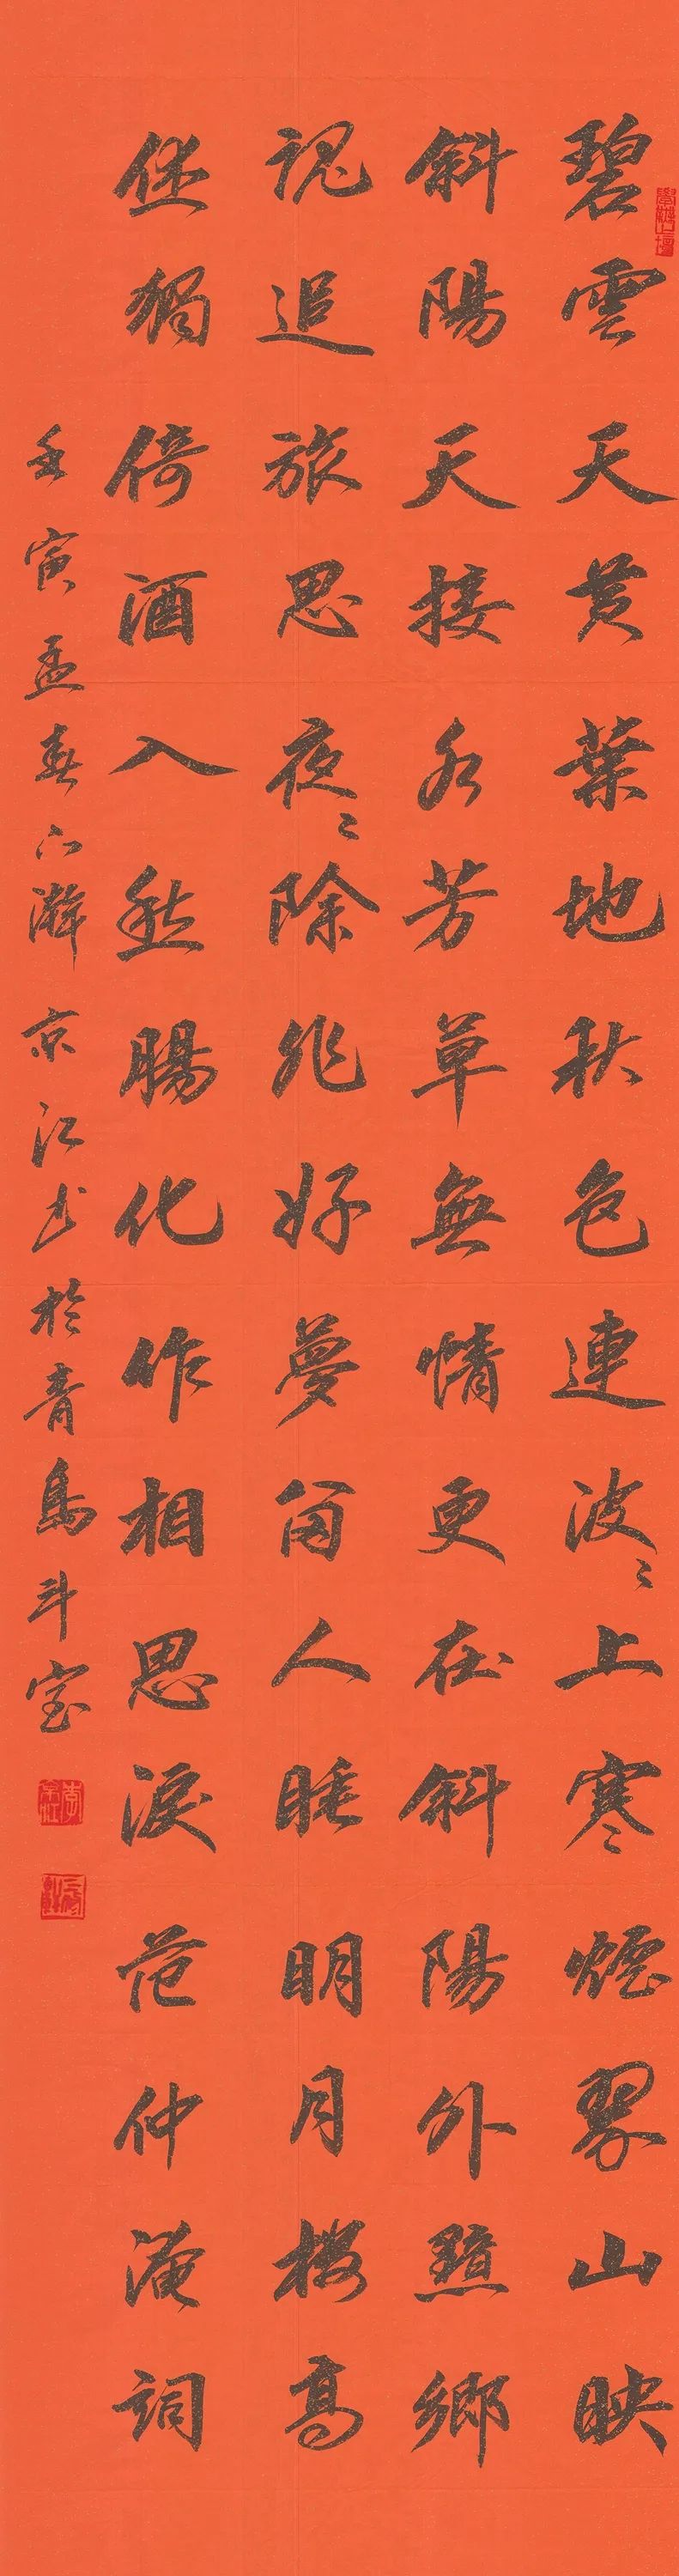 碧雲天黃葉地秋色連波〻上寒煙翠山映
斜陽天接水芳草無情更在斜陽外黯鄉
魂追旅思夜〻除非好夢留人睡明月樓高
休獨倚酒入愁腸化作相思淚范仲淹詞
壬寅孟春六游京江書於青島斗室